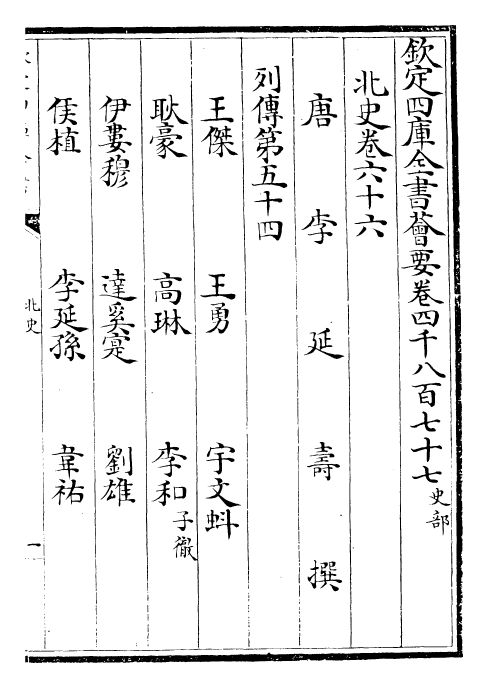 欽定四庫全書薈要卷四千八百七十七史部
北史卷六十六
唐李延壽撰
列傳第五十四
王傑 王勇 宇文虯
耿豪 高琳 李和子徹
伊婁穆 達奚寔 劉雄
侯植 李延孫 韋祐
北史
一